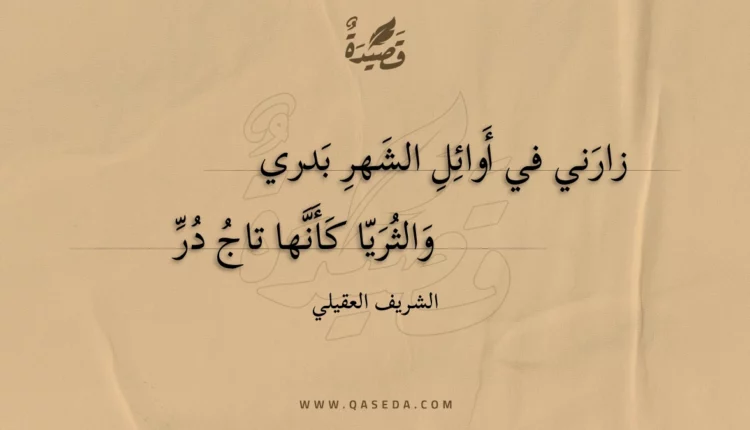 قَصِيدَةٌ
زارَني في أَوائِلِ الشَهرِ بَدري
وَالثُرَيّا كَأَنَّها تاجُ دُرِّ
الشريف العقيلي
WWW.QASEDA.COM